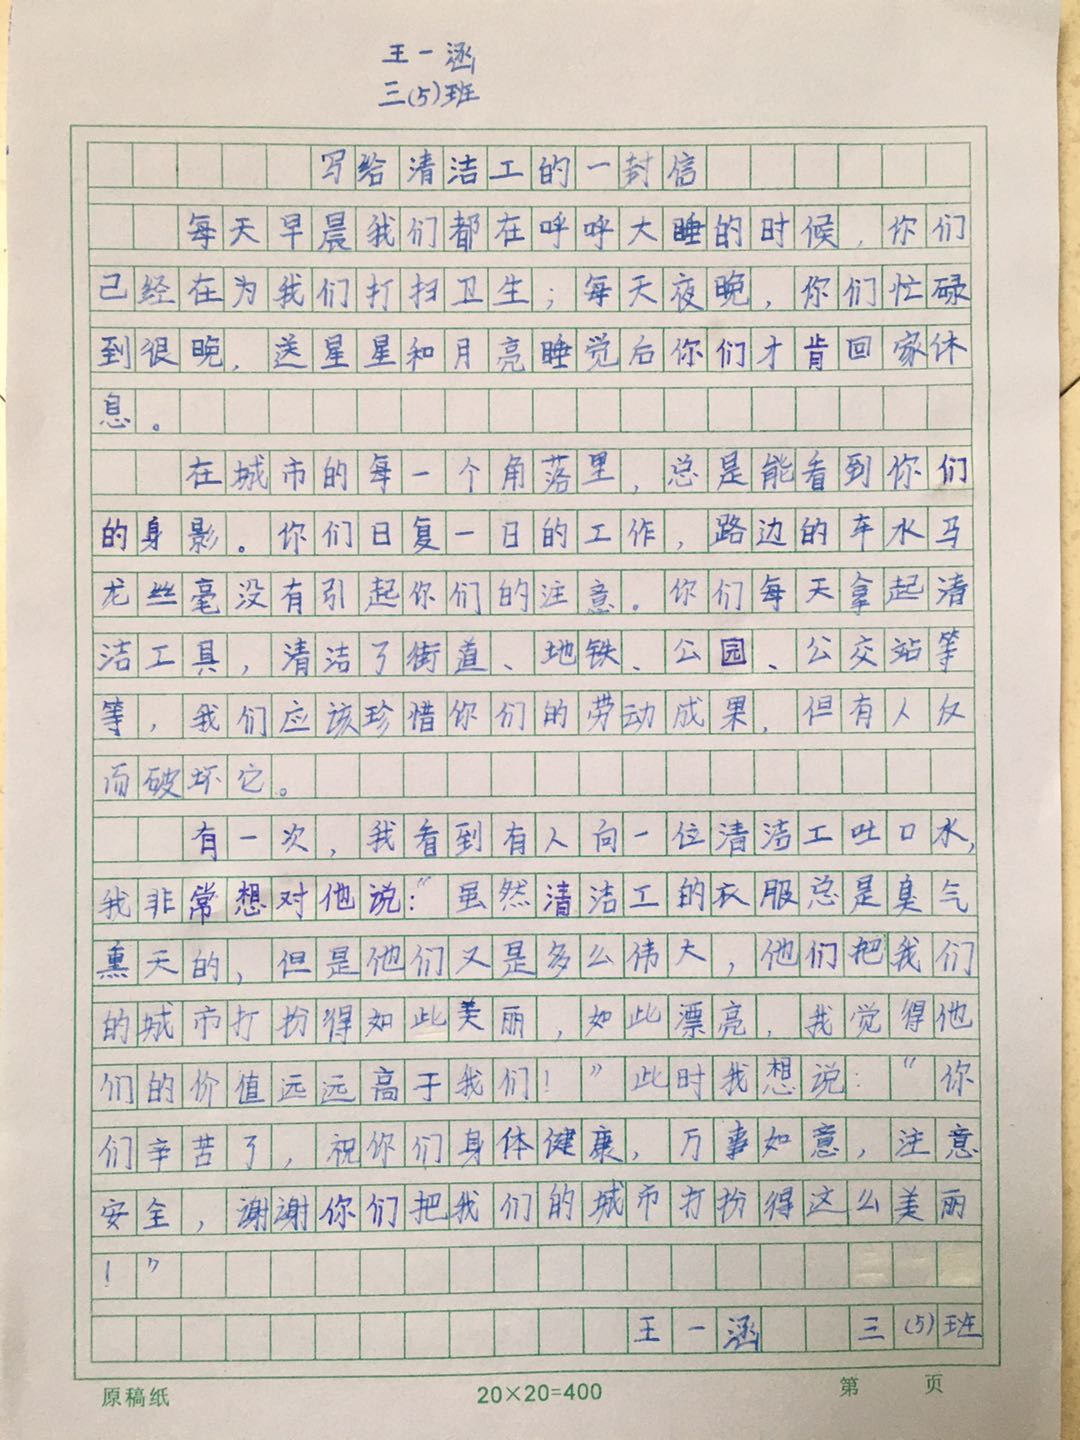 王一涵
三(5)班
写给清洁工的一封信
每天早晨我们都在呼呼大睡的时候，你们
已经在为我们打扫卫生；每天夜晚，你们忙碌
到很晚，送星星和月亮睡觉后你们才肯回家休
息。
在城市的每一个角落里，总是能看到你们
的身影。你们日复一日的工作，路边的车水马
龙丝毫没有引起你们的注意。你们每天拿起清
洁工具，清洁了街道、地铁、公园、公交站等
等，我们应该珍惜你们的劳动成果，但有人反
而破坏它。
有一次，我看到有人向一位清洁工吐口水，
我非常想对他说：“虽然清洁工的衣服总是臭气
熏天的，但是他们又是多么伟大，他们把我们
的城市打扮得如此美丽，如此漂亮，我觉得他
们的价值远远高于我们！”此时我想说：“你
们辛苦了，祝你们身体健康，万事如意，注意
安全，谢谢你们把我们的城市打扮得这么美丽
！”
王一涵 三(5)班
原稿纸 20×20=400 第 页